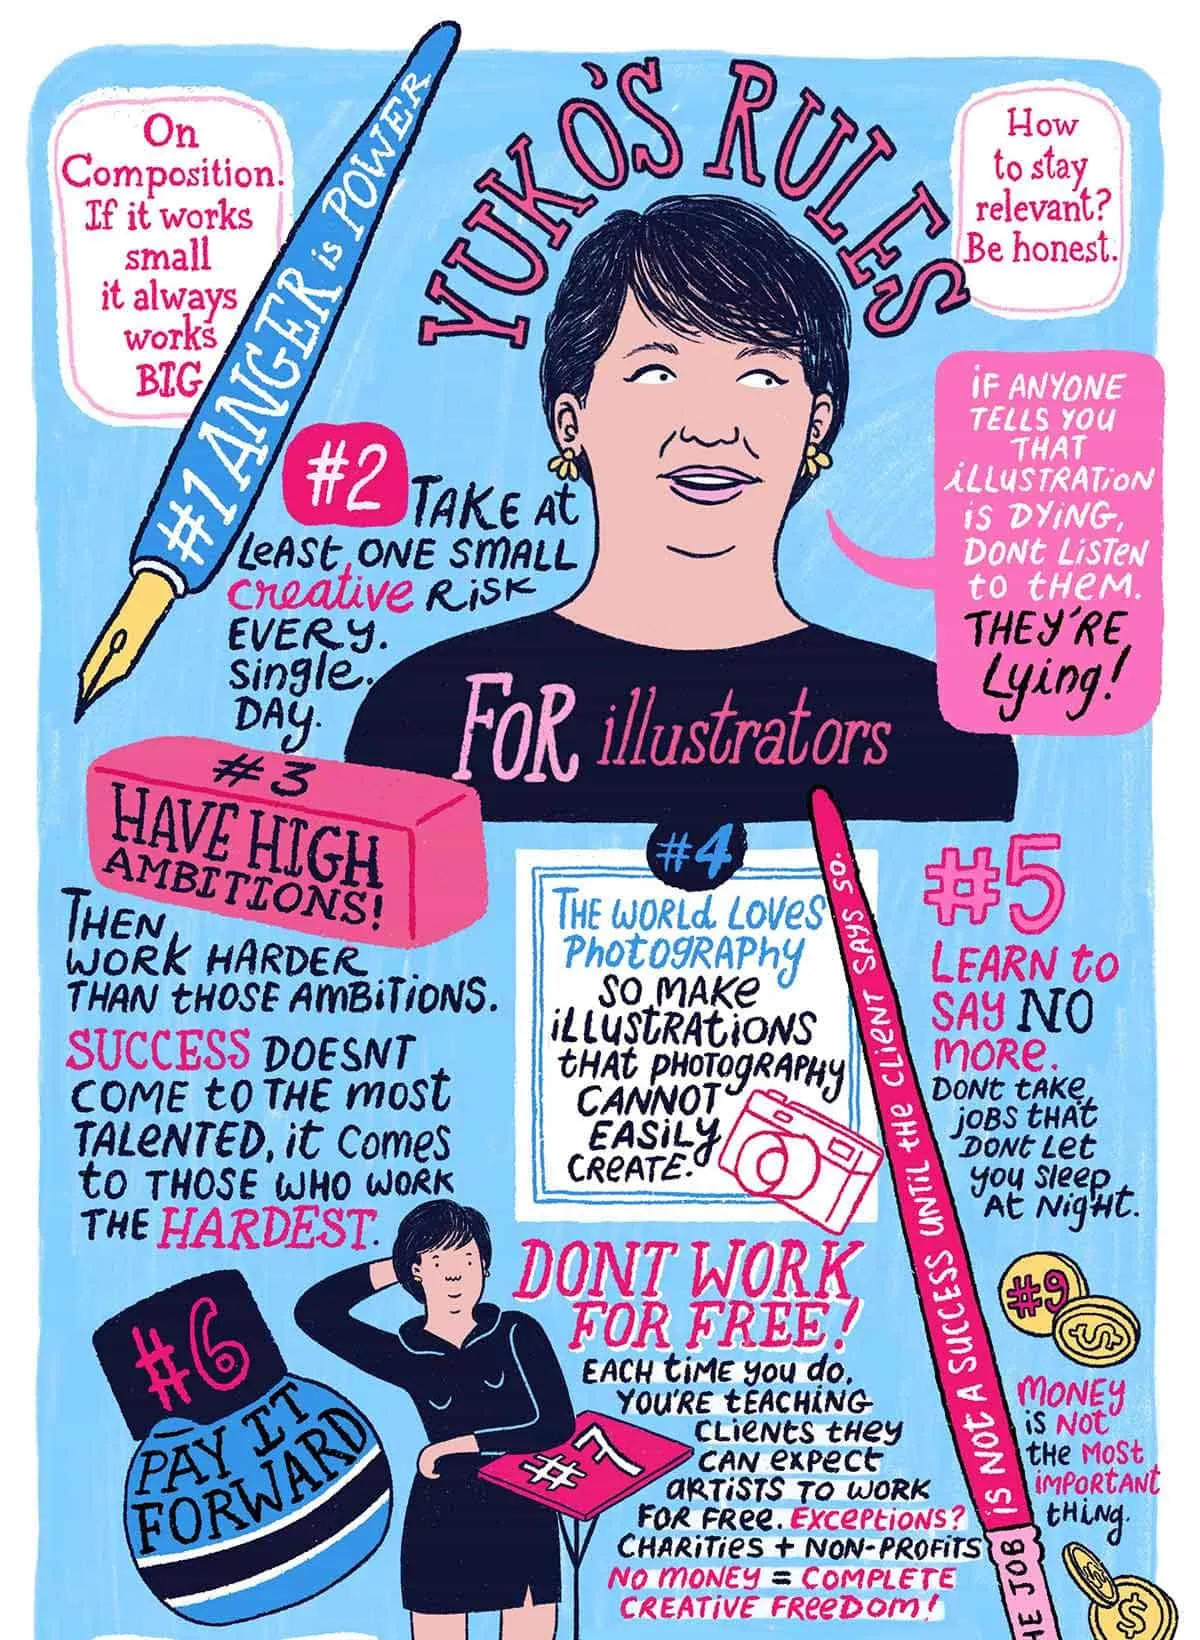 YUKO'S RULES
FOR illustrators
On
Composition.
If it works
small
it always
works
BIG
How
to stay
relevant?
Be honest.
iF ANYONE
TELLS YOU
THAT
iLLUSTRATiON
iS DYiNG,
DONT LiSTEN
to tHEM.
THEY'RE
Lying!
#1 ANGER is POWER
#2 TAKE At
LeAST ONE SMALL
creative RiSK
EVERY.
single.
DAY.
#3
HAVE HIGH
AMBITIONS!
THEN
WORK HARDER
THAN tHOSE AMBiTiONS.
SUCCESS DOESNT
COME tO THE most
TALENTED, it comes
to THOSE WHO WORK
THE HARDEST.
#4
THE WORLd LOVES
PhotoGRAPhy
SO MAKE
iLLUStRAtiONS
tHAt PHOtOGRAPHY
CANNOT
EASiLy
CREATE.
#5
LEARN to
SAY NO
MORE.
DONt tAKE
jOBS tHAt
DONt LEt
you SLeep
At NiGHt.
#6
PAY IT
FORWARD
#7
DONT WORK
FOR FREE!
EACH tiME YOU do,
YOU'RE tEACHiNG
CLiENtS tHEy
CAN expect
ARTiSTS TO WORK
FOR FREE. EXCEPtiONS?
CHARitiES + NON-PROFitS
NO MONEY = COMPLETE
CREATiVE FReeDOM!
HE JOB iS NOt A SUCCESS UNtiL tHE CLiENt SAYS SO.
#9
MONEY
iS NOt
tHE MOSt
iMPORtANt
tHiNG.